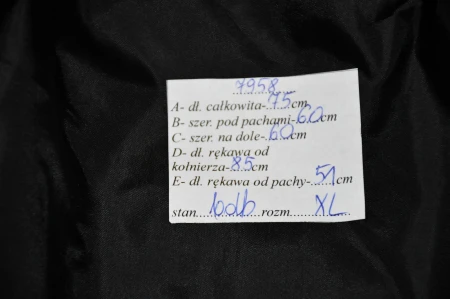 7958
A- dł. całkowita-75cm
B- szer. pod pachami-60cm
C- szer. na dole-60cm
D- dł. rękawa od
kołnierza-85cm
E- dł. rękawa od pachy-51cm
stan....bdb....rozm....XL